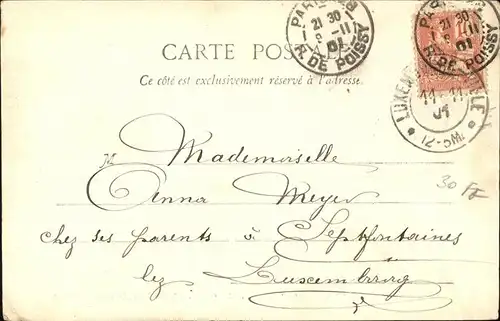 PARIS
21 30
11
01
R. DE POISSY
21 30
11
01
R. DE POISSY
CARTE POSTALE
Ce côté est exclusivement réservé à l'adresse.
LUXEMBOURG-VILLE
11 11
01
Mademoiselle
Anna Meyer
chez ses parents à Septfontaines
lez Luxembourg
30